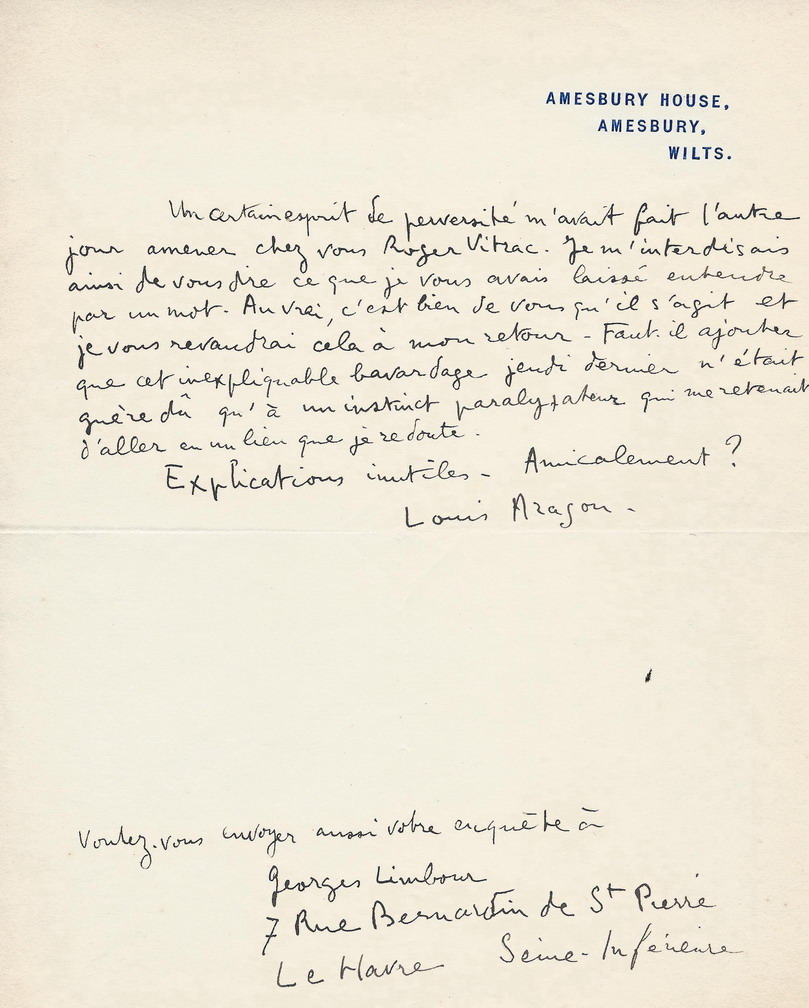 AMESBURY HOUSE,
AMESBURY,
WILTS.
Un certain esprit de perversité m'avait fait l'autre
jour amener chez vous Roger Vitrac. Je m'interdisais
ainsi de vous dire ce que je vous avais laissé entendre
par un mot. Au vrai, c'est bien de vous qu'il s'agit et
je vous revaudrai cela à mon retour - Faut-il ajouter
que cet inexpliquable bavardage jeudi dernier n'était
guère dû qu'à un instinct paralysateur qui me retenait
d'aller en un lieu que je redoute.
Explications inutiles - Amicalement ?
Louis Aragon -
Voulez-vous envoyer aussi votre enquête à
Georges Limbour
7 Rue Bernardin de St Pierre
Le Havre Seine-Inférieure